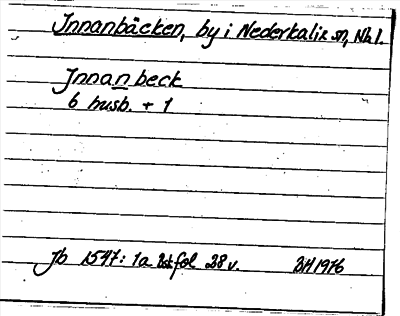 Innanbäcken, by i Nederkalix sn, Nb l.
Innan beck
6 husb. + 1
Jb 1547: 1a Bst fol 28 v. BH 1976